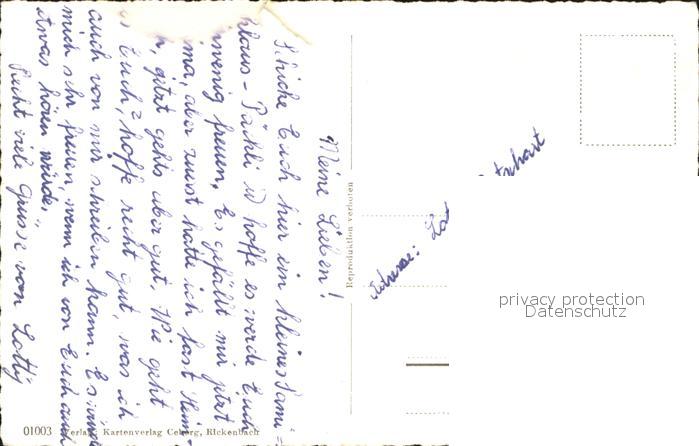 Meine Lieben!
Schicke Euch hier ein kleines Sami=
klaus-Päkli u hoffe es werde Euch
wenig freuen. Es gefällt mir jetzt
ma, aber zuerst hatte ich fast Heim=
h, jetzt gehts aber gut. Wie geht
Euch? hoffe recht gut, was ich
auch von mir schreiben kann. Es würde
mich sehr freuen, wenn ich von Euch auch
etwas hören würde.
Recht viele Grüsse von Lotty
Reproduktion verboten
Adresse:
01003 Verlag Kartenverlag Ceberg, Rickenbach
privacy protection
Datenschutz